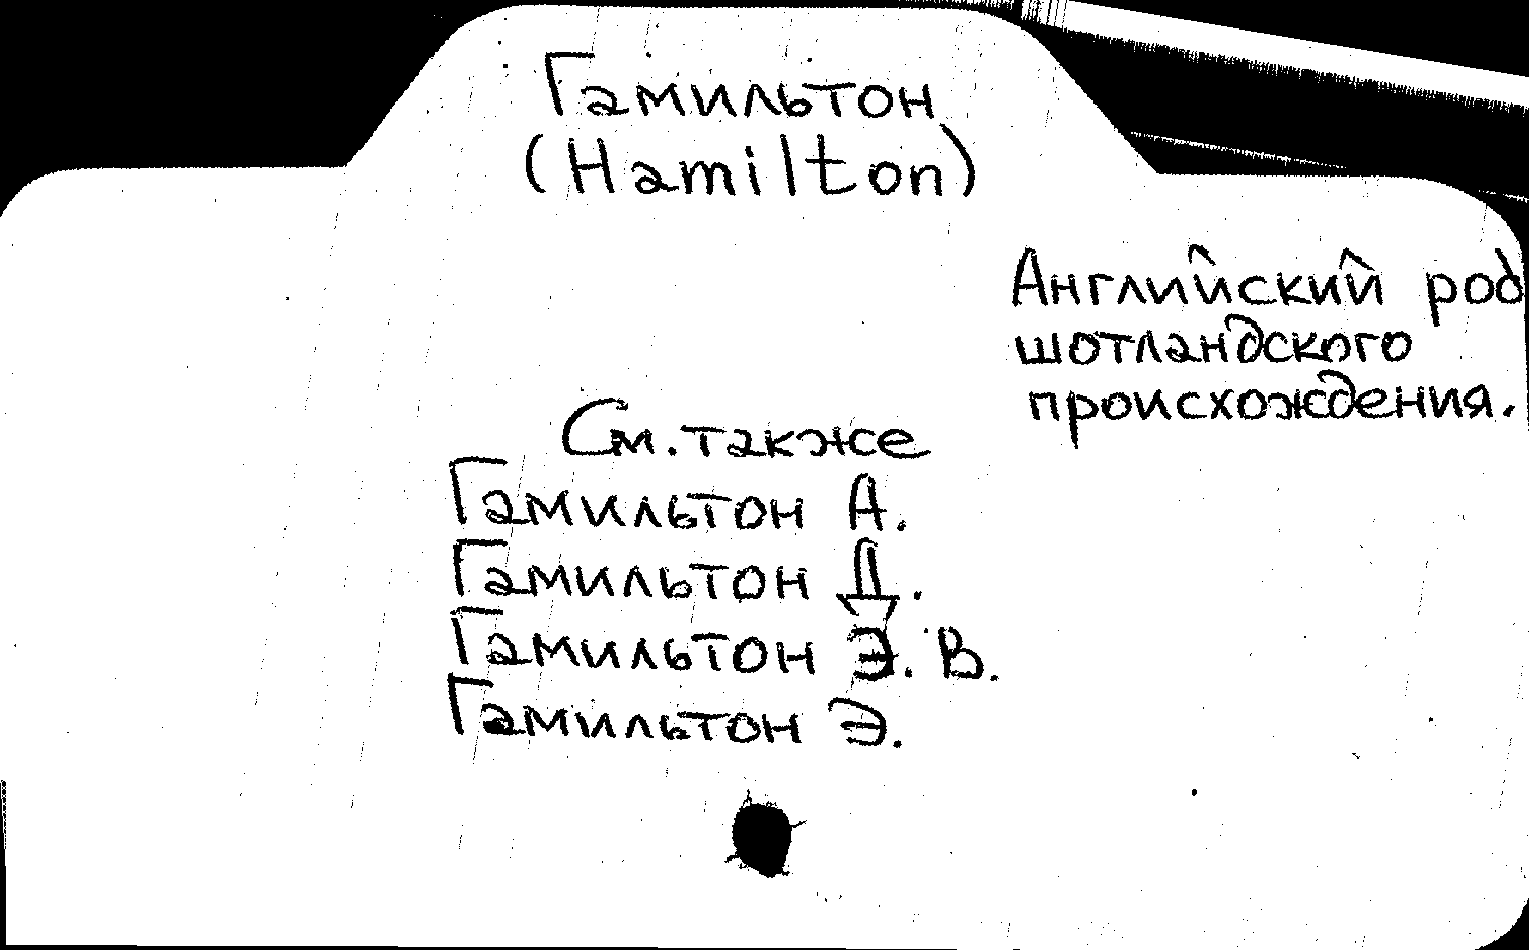 Гамильтон
(Hamilton)
Английский род
шотландского
происхождения.
См. также
Гамильтон А.
Гамильтон Д.
Гамильтон Э. В.
Гамильтон Э.